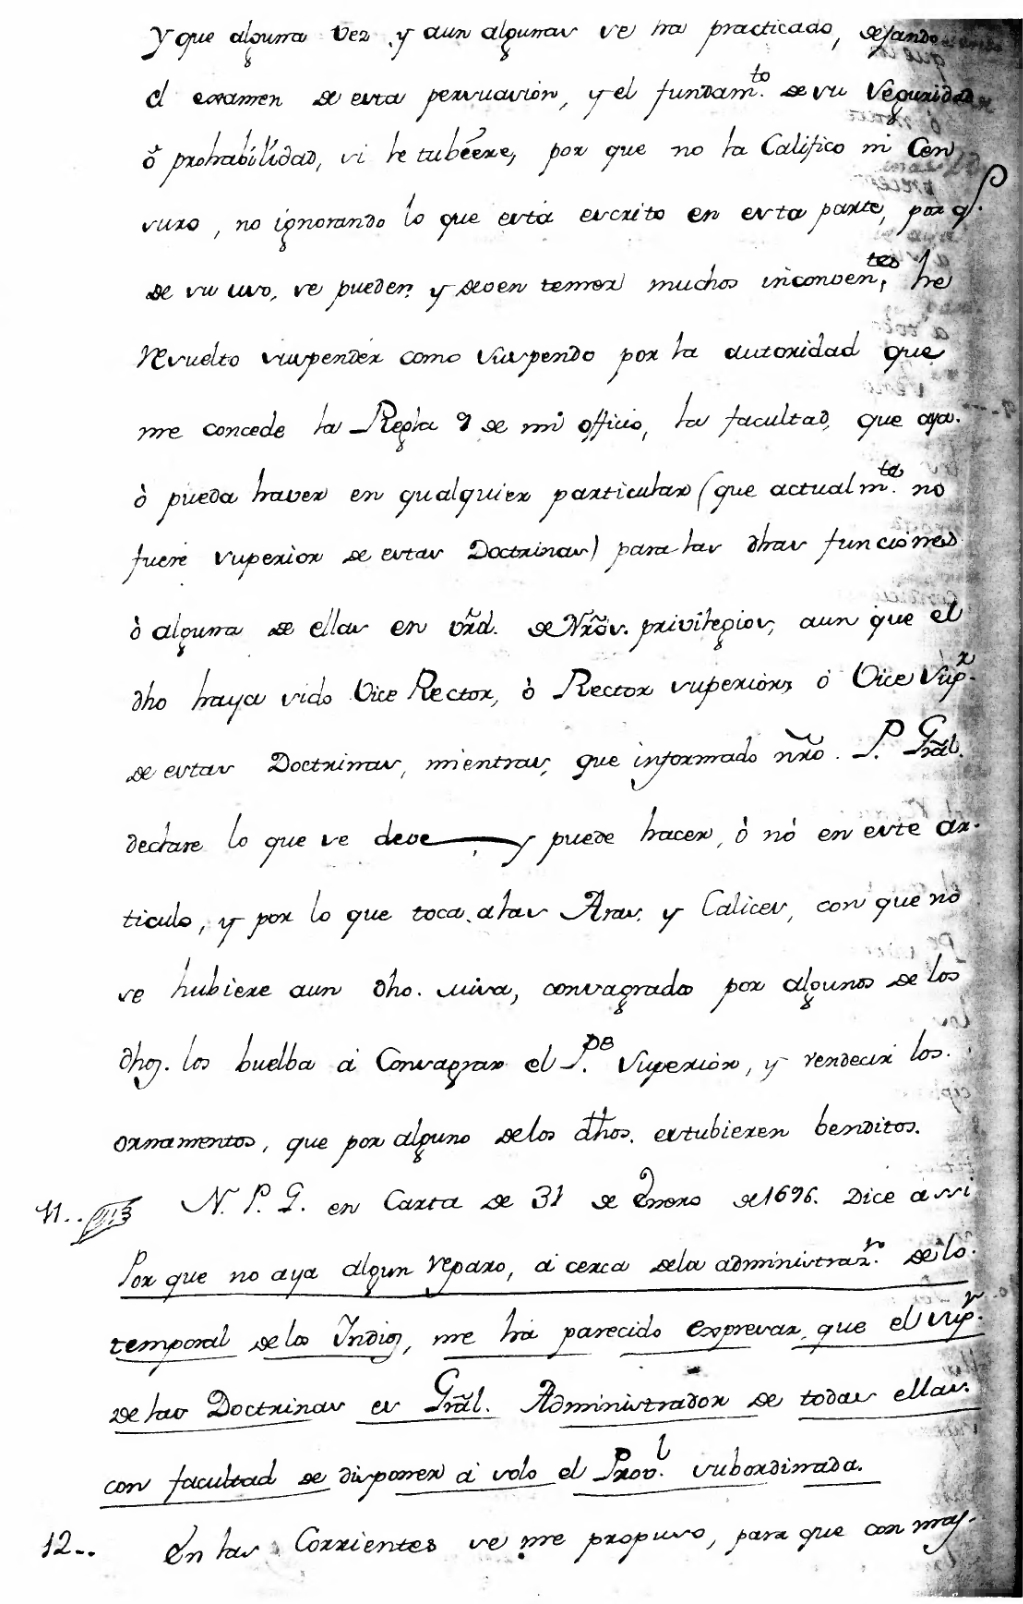 y que alguna vez y aun algunas se ha practicado, dejando
el examen de esta persuasion, y el fundam.to de su seguridad
ò probabilidad, si le tubiere, por que no la Califico ni Cen
suro, no ignorando lo que està escrito en esta parte, por q.
de su uso, se pueden y deven temer muchos inconven.tes he
resuelto suspender como suspendo por la autoridad que
me concede la Regla 9 de mi officio, la facultad, que aya.
ò pueda haver en qualquier particular (que actualm.te no
fuere superior de estas Doctrinas) para las dhas funciones
ò alguna de ellas en vrd. de Nros. privilegios, aun que el
dho haya sido Vice Rector, ò Rector superior, ò Vice Sup.r
de estas Doctrinas, mientras, que informado nro. P. Gral.
declare lo que se deve y puede hacer, ò nó en este ar-
ticulo, y por lo que toca a las Aras, y Calices, con que no
se hubiere aun dho. missa, consagrados por algunos de los
dhos. los buelba à Consagrar el P.pe Superior, y rendecir los.
ornamentos, que por alguno de los dhos. estubieren benditos.
11.. N. P. G. en Carta de 31 de Enero de 1696. Dice assi
Por que no aya algun reparo, à cerca de la administraz.n de lo
temporal de los Indios, me ha parecido expresar, que el sup.r
de las Doctrinas es Gral. Administrador de todas ellas.
con facultad de disponer à solo el Prov.l subordinada.
12.. En las Corrientes se me propuso, para que con may.